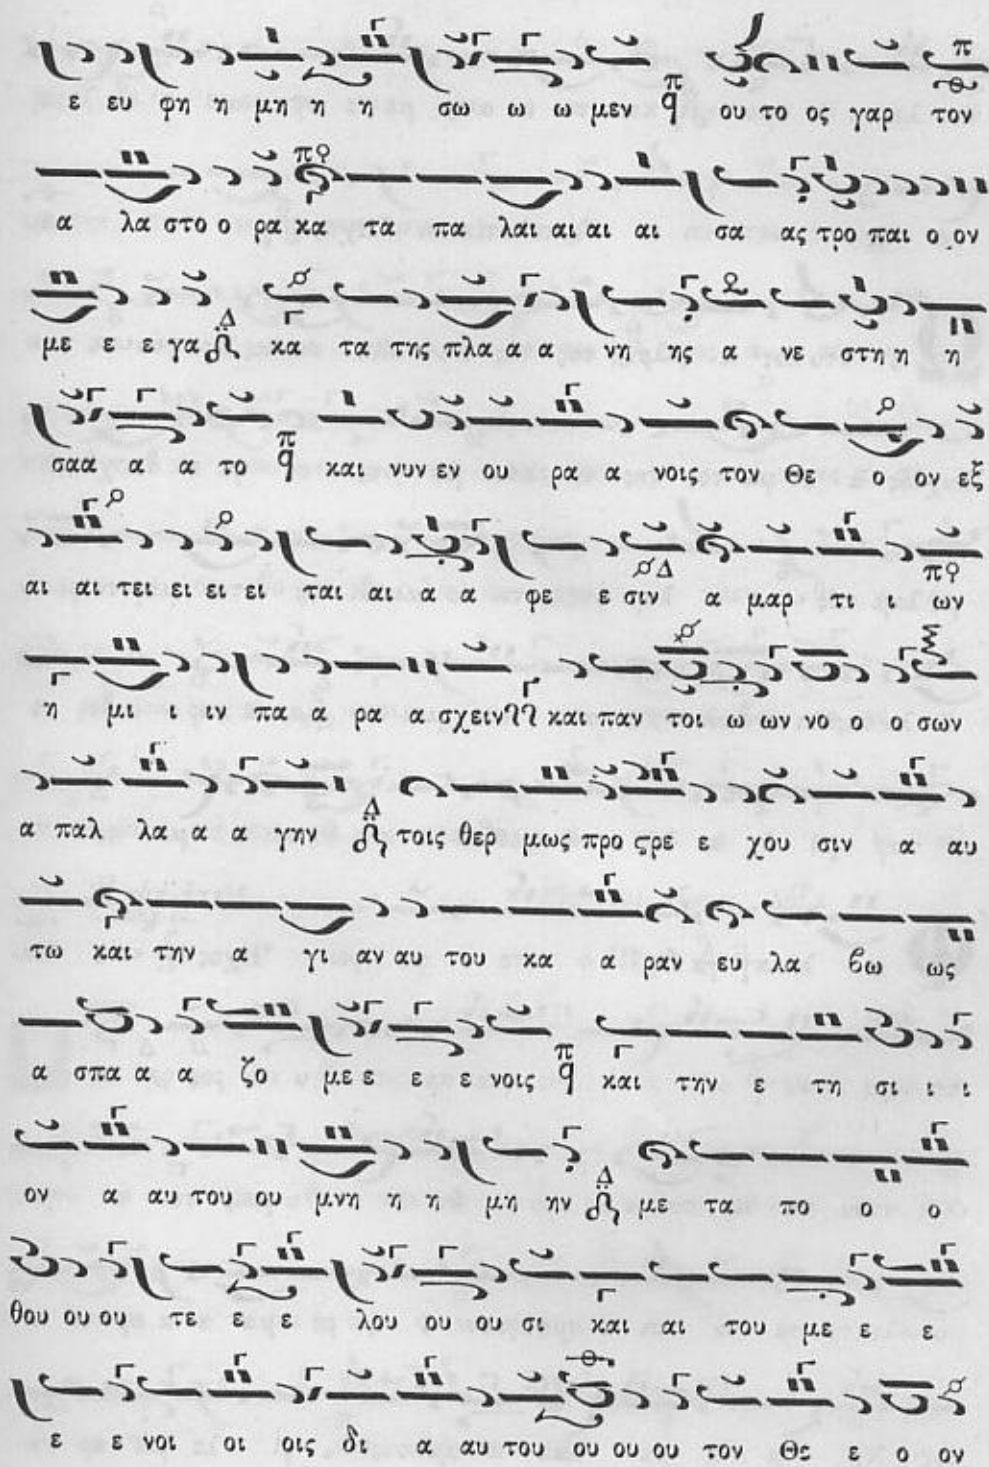 ε ευ φη η μη η η σω ω ω μεν ου το ος γαρ τον
α λα στο ο ρα κα τα πα λαι αι αι αι σα ας τρο παι ο ον
με ε ε γα κα τα της πλα α α νη ης α νε στη η η
σαα α α το και νυν εν ου ρα α νοις τον Θε ο ον εξ
αι αι τει ει ει ει ται αι α α φε ε σιν α μαρ τι ι ων
η μι ι ιν πα α ρα α σχειν και παν τοι ω ων νο ο ο σων
α παλ λα α α γην τοις θερ μως προ ςρε ε χου σιν α αυ
τω και την α γι αν αυ του κα α ραν ευ λα βω ως
α σπα α α ζο με ε ε ε νοις και την ε τη σι ι ι
ον α αυ του ου μνη η η μη ην με τα πο ο ο
θου ου ου τε ε ε λου ου ου σι και αι του με ε ε
ε ε νοι οι οις δι α αυ του ου ου ου τον Θε ε ο ον